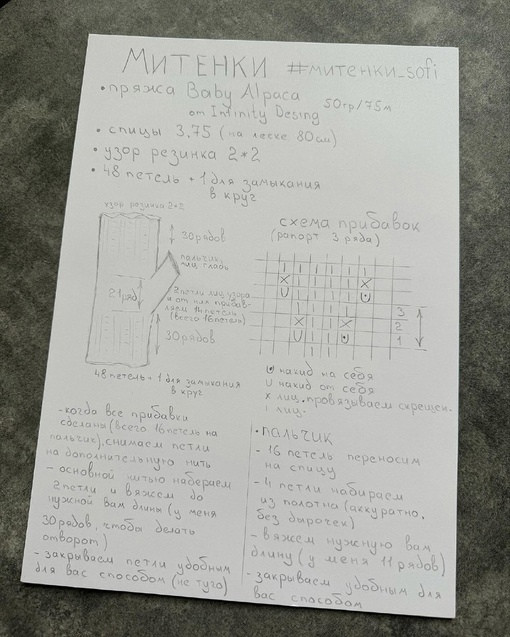 МИТЕНКИ #митенки_sofi
• пряжа Baby Alpaca 50гр/75м
от Infinity Desing
• спицы 3,75 (на леске 80см)
• узор резинка 2*2
• 48 петель + 1 для замыкания
в круг
узор резинка 2*2
30 рядов
пальчик
лиц. гладь
21 ряд
2 петли лиц. узора
и от них прибав-
ляем 14 петель
(всего 16 петель)
30 рядов
48 петель + 1 для замыкания
в круг
схема прибавок
(рапорт 3 ряда)
3
2
1
накид на себя
U накид от себя
X лиц. провязываем скрещен.
ı лиц.
- когда все прибавки
сделаны (всего 16 петель на
пальчик), снимаем петли
на дополнительную нить
- основной нитью набераем
2 петли и вяжем до
нужной вам длины (у меня
30 рядов, чтобы делать
отворот)
- закрываем петли удобным
для вас способом (не туго)
• пальчик
- 16 петель переносим
на спицу
- 4 петли набираем
из полотна (аккуратно,
без дырочек)
- вяжем нужную вам
длину (у меня 11 рядов)
- закрываем удобным для
вас способом